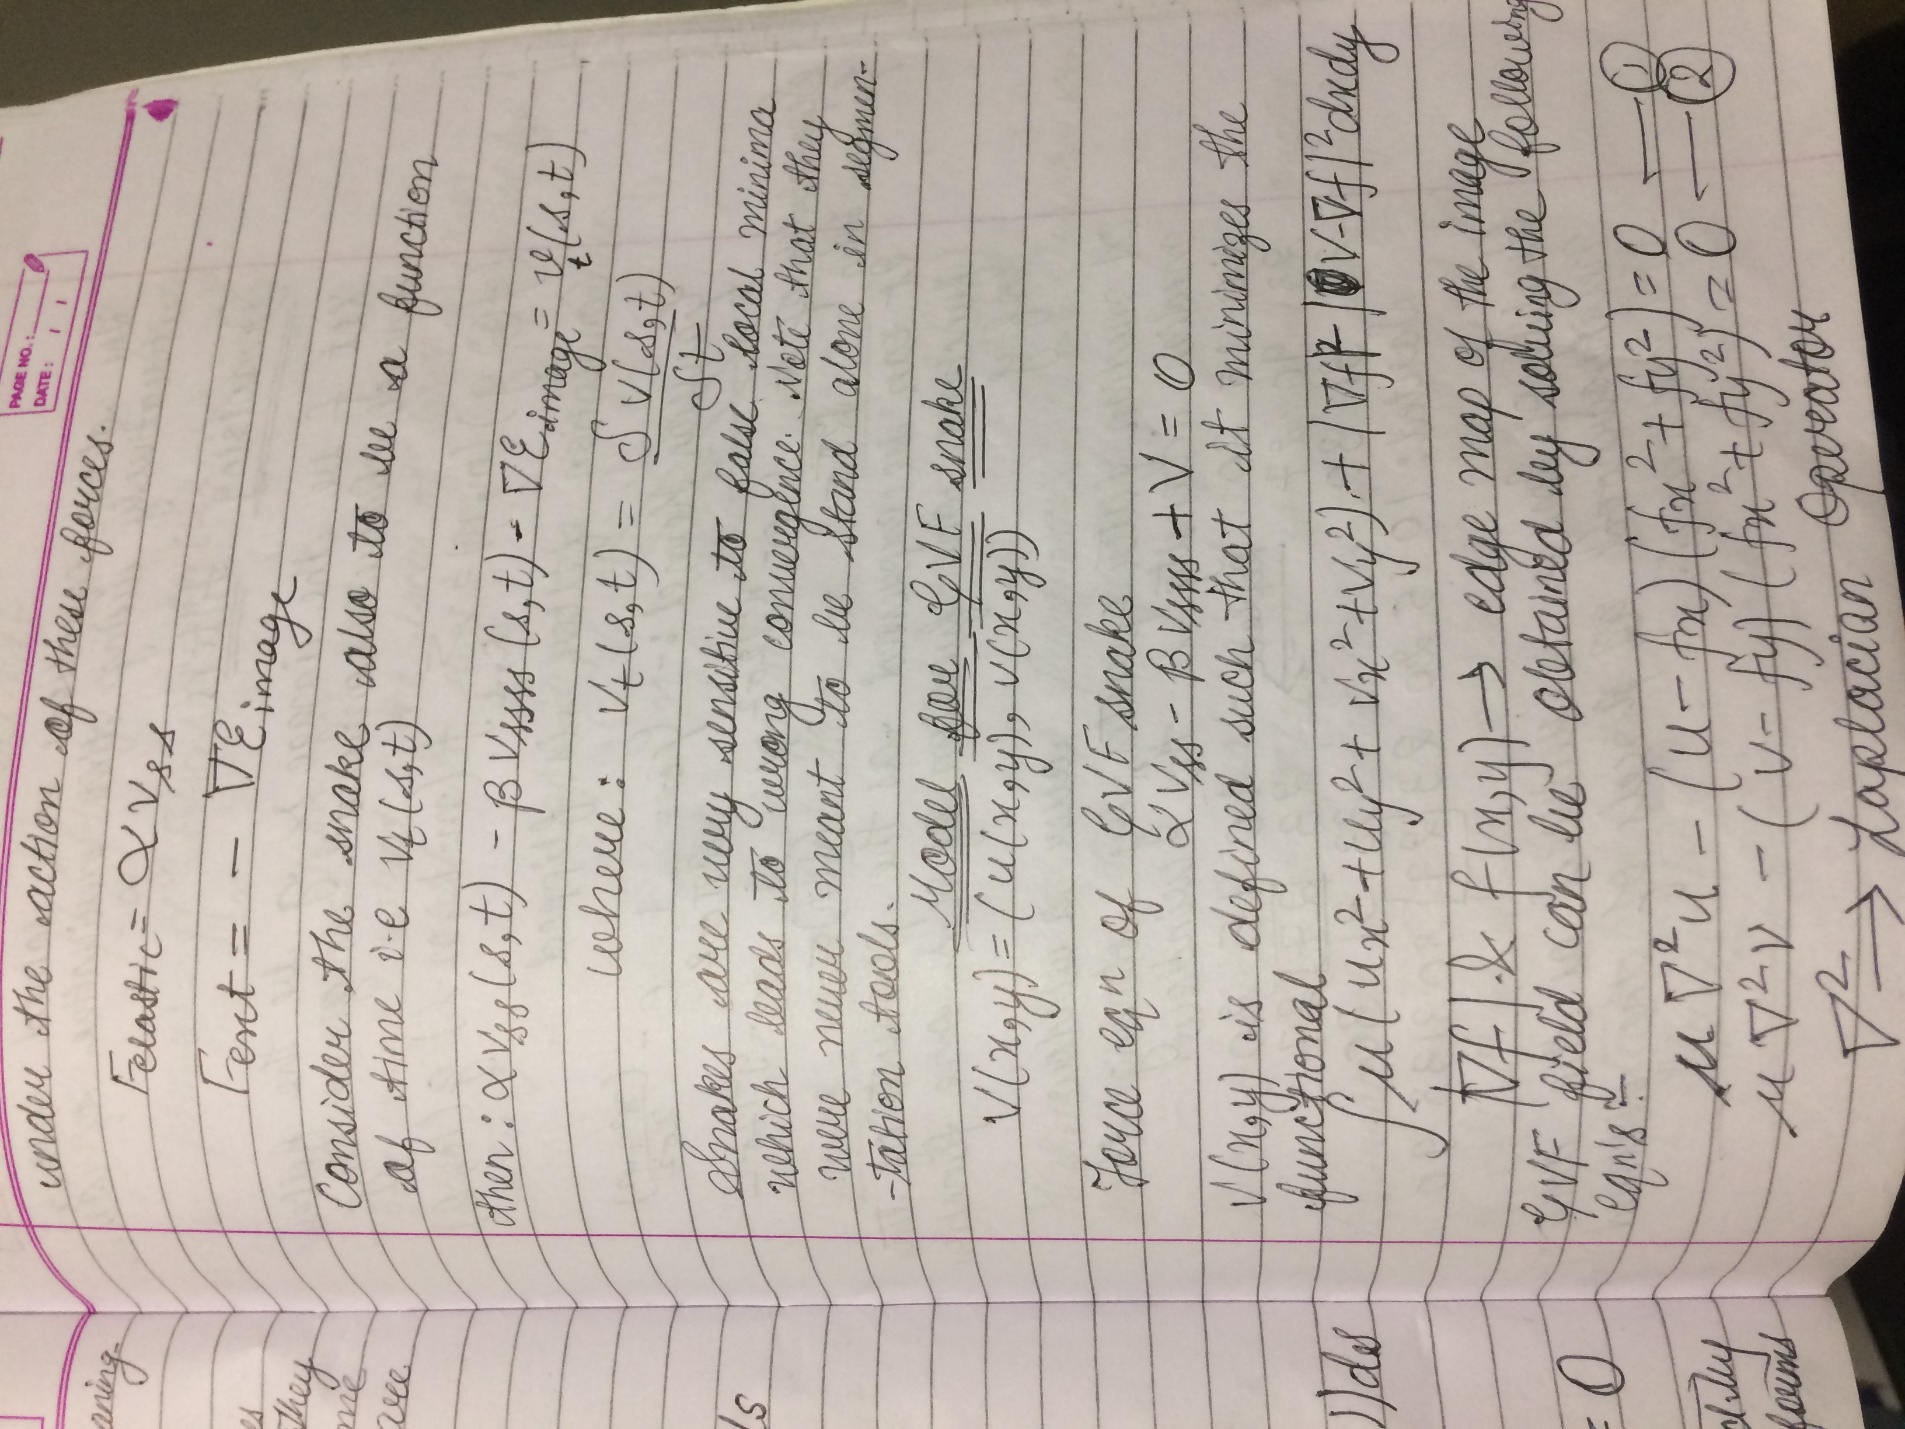 PAGE NO.:
DATE: / /
under the action of these forces.
Felastic = αVss
Fext = - ∇Eimage
Consider the snake also to be a function
of time i.e Vt(s,t)
then: αVss(s,t) - βVssss(s,t) - ∇Eimage = vt(s,t)
where: Vt(s,t) = δV(s,t)
δt
Snakes are very sensitive to false local minima
which leads to wrong convergence. Note that they
were never meant to be stand alone in segmen-
-tation tools.
Model for GVF snake
V(x,y) = (u(x,y), v(x,y))
Force eqn of GVF snake
αVss - βVssss + V = 0
V(x,y) is defined such that it minimizes the
functional
∫μ(ux²+uy²+vx²+vy²) + |∇f|² |V-∇f|² dxdy
|∇f| & f(x,y) → edge map of the image
GVF field can be obtained by solving the following
eqn's:
μ∇²u - (u-fx)(fx²+fy²) = 0 — ①
μ∇²v - (v-fy)(fx²+fy²) = 0 — ②
∇² → Laplacian Operator
aning-
they
are
)ds
= 0
forms